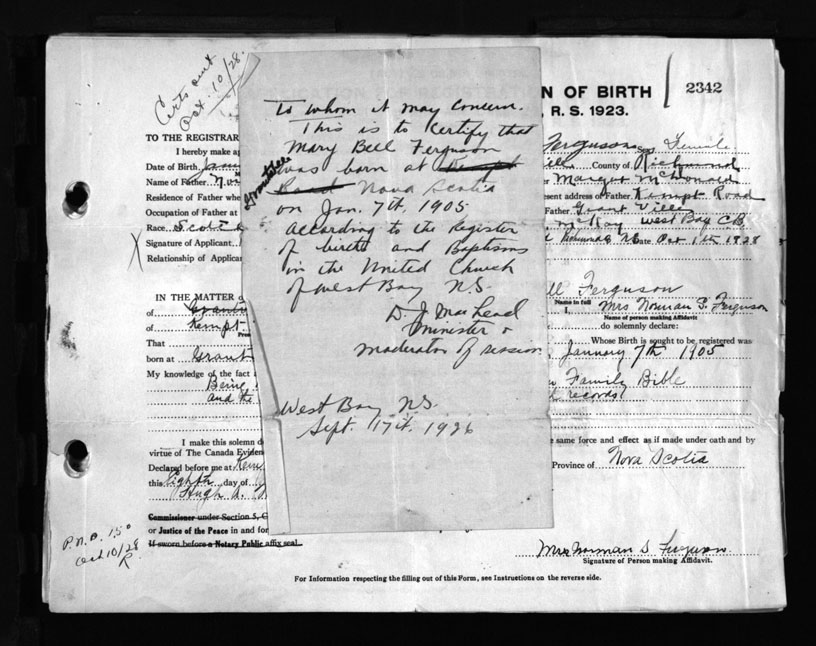 Certs sent
Oct. 10/28.
N OF BIRTH
2342
R. S. 1923.
TO THE REGISTRAR
I hereby make a
Ferguson Female
Date of Birth, Jan
County of Richmond
Name of Father, Nor
Margaret McDonald
Residence of Father whe
esent address of Father Kempt Road
Occupation of Father at
Father Grant Ville
Race, Scotc
McKay West Bay C.B
Signature of Applicant,
Richmond NS Date Oct 1th 1928
Relationship of Applicant
To whom it may concern.
This is to certify that
Mary Bell Ferguson
was born at Kempt
Grantville
Road Nova Scotia
on Jan. 7th, 1905
according to the Register
of births and Baptisms
in the United Church
of West Bay N.S.
D. J. MacLead
Minister &
Moderator of session
West Bay N.S.
Sept. 17th, 1926
IN THE MATTER o
ll Ferguson
of Grantv
Name in full
I, Mrs Norman S. Ferguson
of Kempt
Name of person making Affidavit
do solemnly declare:
That
Whose Birth is sought to be registered was
born at Grant
January 7th 1905
My knowledge of the fact a
Being
Family Bible
and the
records
I make this solemn d
e same force and effect as if made under oath and by
virtue of The Canada Eviden
Declared before me at Kem
Province of Nova Scotia
this Eighth day of
Hugh A.
Commissioner under Section 5, C
or Justice of the Peace in and for
If sworn before a Notary Public affix seal.
P.N.O. 150
Oct 10/28
R
Mrs Norman S Ferguson
Signature of Person making Affidavit.
For Information respecting the filling out of this Form, see Instructions on the reverse side.